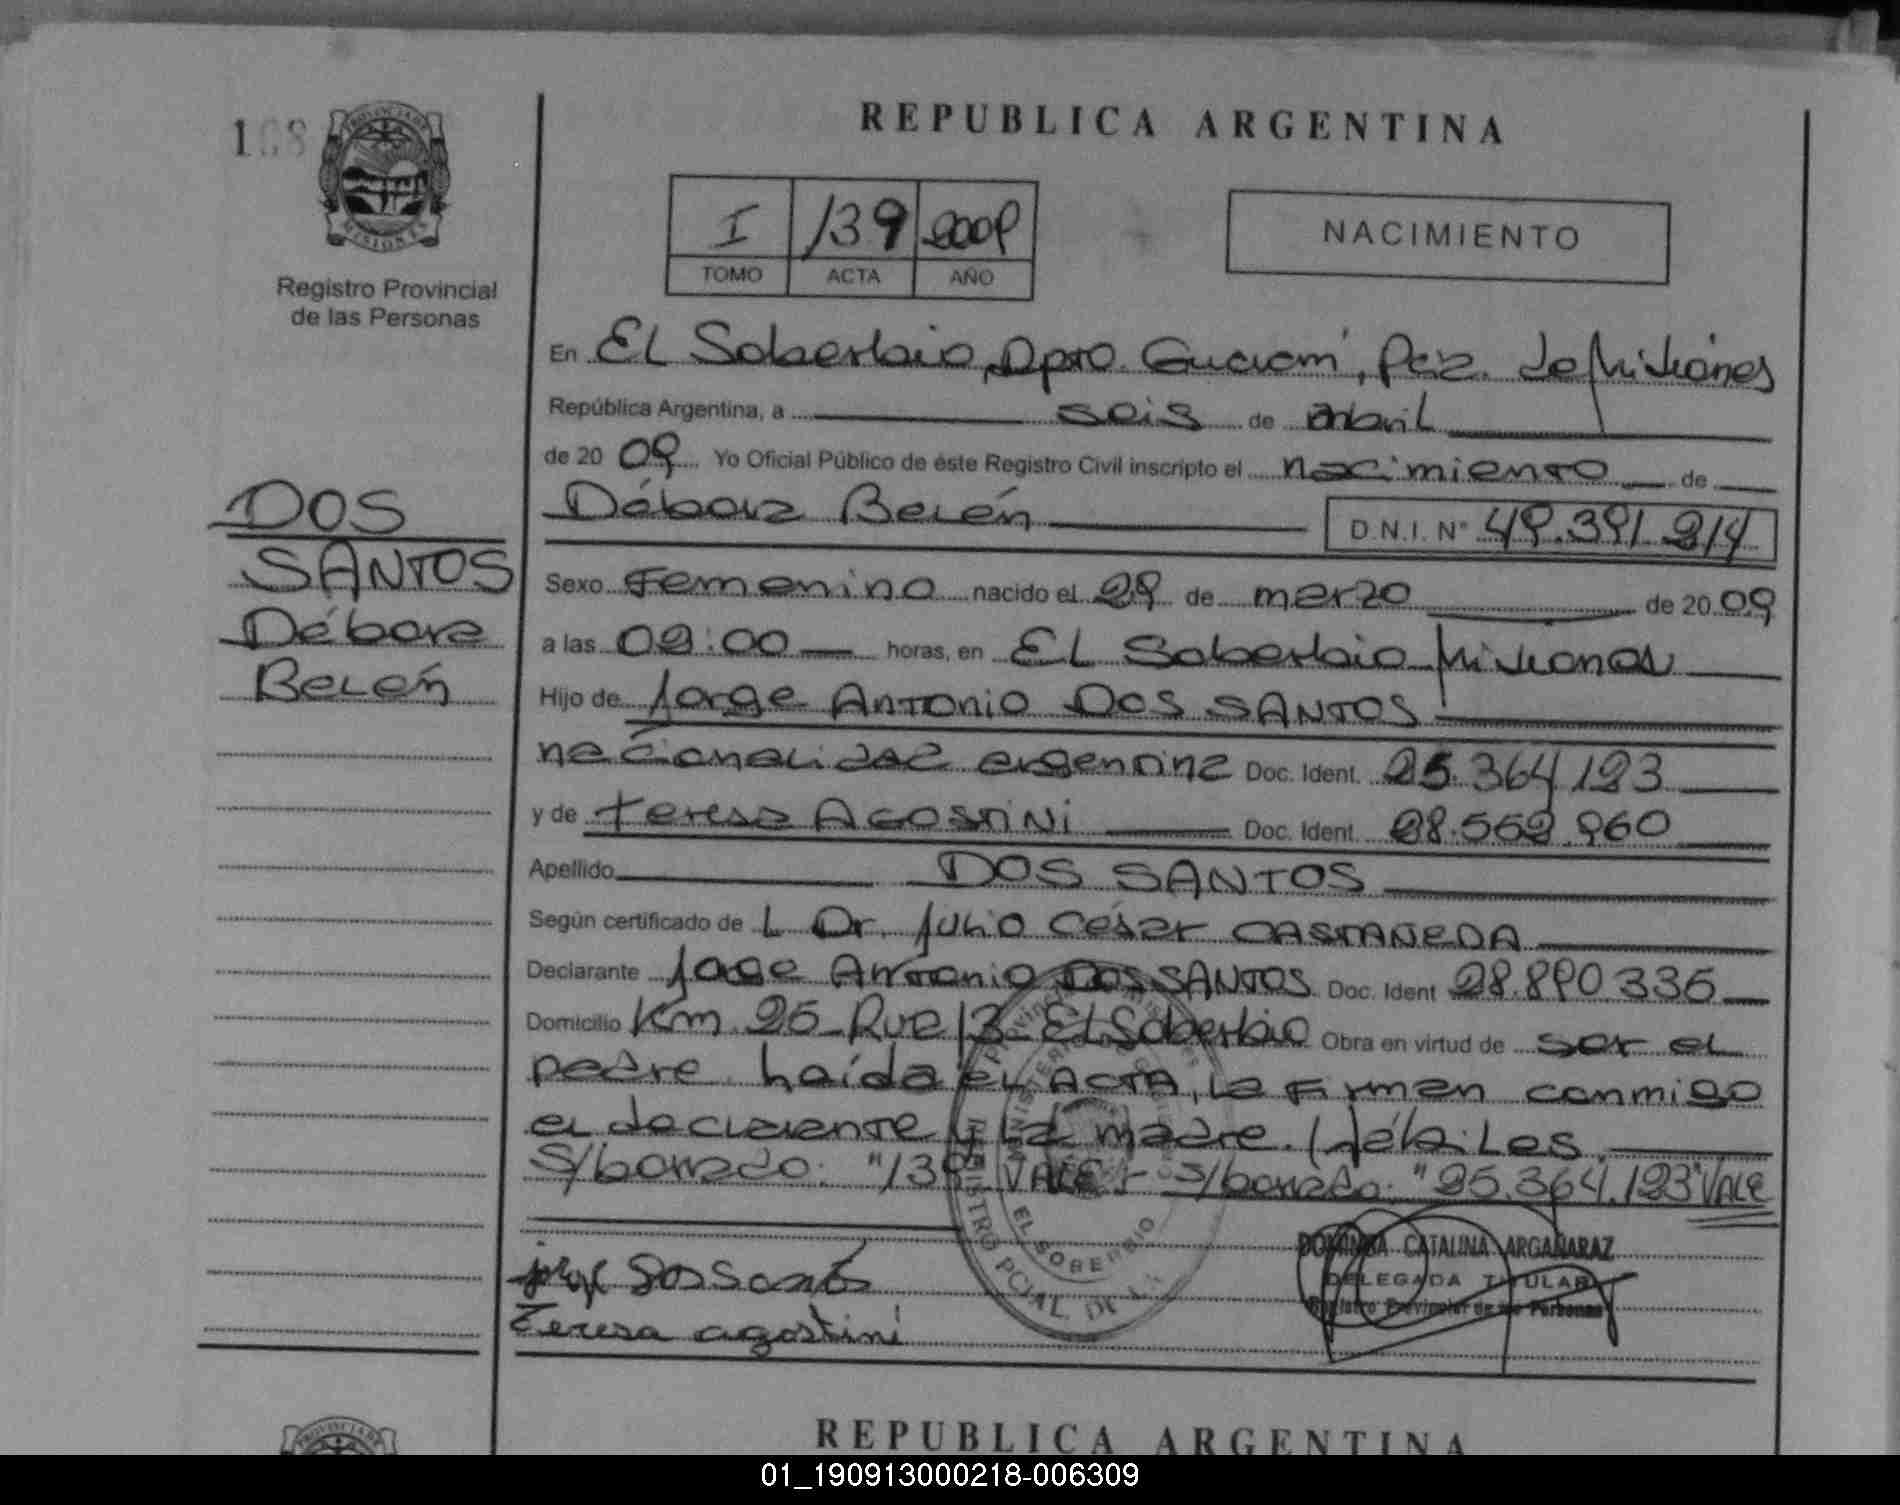 168
PROVINCIA DE
MISIONES
Registro Provincial
de las Personas
REPUBLICA ARGENTINA
I 139 2009
TOMO ACTA AÑO
NACIMIENTO
En El Soberbio, Dpto. Guaraní, Pcia. de Misiones
República Argentina, a seis de abril
de 20 09 Yo Oficial Público de éste Registro Civil inscripto el nacimiento de
Débora Belén D.N.I. Nº 49.391.214
DOS
SANTOS
Débora
Belén
Sexo Femenino nacido el 29 de marzo de 20 09
a las 02:00 horas, en El Soberbio Misiones
Hijo de Jorge Antonio DOS SANTOS
nacionalidad argentina Doc. Ident. 25.364.123
y de Teresa AGOSTINI Doc. Ident. 28.562.960
Apellido DOS SANTOS
Según certificado de L Dr. Julio César CASTAÑEDA
Declarante Jorge Antonio DOS SANTOS Doc. Ident 28.890.336
Domicilio Km 25 Ruta 13 El Soberbio Obra en virtud de ser el
padre. Leída el ACTA, la firman conmigo
el declarante y la madre. hábiles.
S/borrado: "139" VALE.- S/borrado: "25.364.123" VALE
EL SOBERBIO
REGISTRO PCIAL. DE LA
DOMINGA CATALINA ARGAÑARAZ
DELEGADA TITULAR
Registro Provincial de las Personas
jorge Dos Santos
Teresa agostini
PROVINCIA DE
REPUBLICA ARGENTINA
01_190913000218-006309